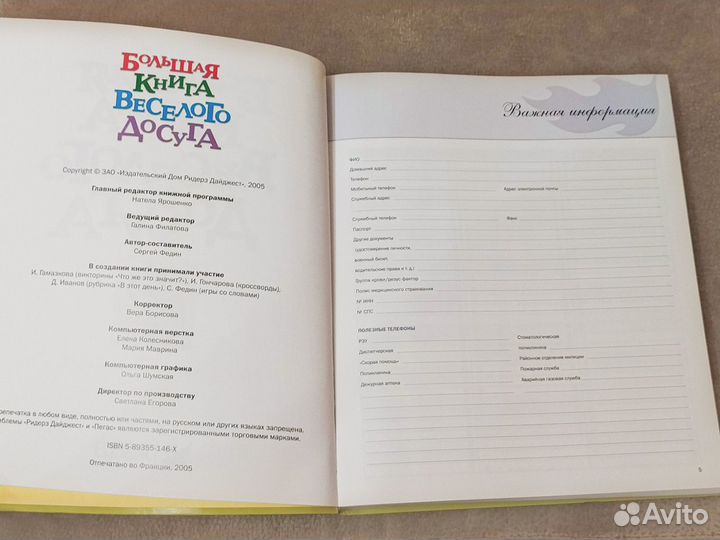 Большая
Книга
Веселого
Досуга
Copyright © ЗАО «Издательский Дом Ридерз Дайджест», 2005
Главный редактор книжной программы
Натела Ярошенко
Ведущий редактор
Галина Филатова
Автор-составитель
Сергей Федин
В создании книги принимали участие
И. Гамазкова (викторины «Что же это значит?»), И. Гончарова (кроссворды),
Д. Иванов (рубрика «В этот день»), С. Федин (игры со словами)
Корректор
Вера Борисова
Компьютерная верстка
Елена Колесникова
Мария Маврина
Компьютерная графика
Ольга Шумская
Директор по производству
Светлана Егорова
репечатка в любом виде, полностью или частями, на русском или других языках запрещена.
блемы «Ридерз Дайджест» и «Пегас» являются зарегистрированными торговыми марками.
ISBN 5-89355-146-X
Отпечатано во Франции, 2005
Важная информация
ФИО
Домашний адрес
Телефон
Мобильный телефон Адрес электронной почты
Служебный адрес
Служебный телефон Факс
Паспорт
Другие документы
(удостоверение личности,
военный билет,
водительские права и т. д.)
Группа крови/резус-фактор
Полис медицинского страхования
№ ИНН
№ СПС
ПОЛЕЗНЫЕ ТЕЛЕФОНЫ
РЭУ Стоматологическая
Диспетчерская поликлиника
«Скорая помощь» Районное отделение милиции
Поликлиника Пожарная служба
Дежурная аптека Аварийная газовая служба
5
Avito